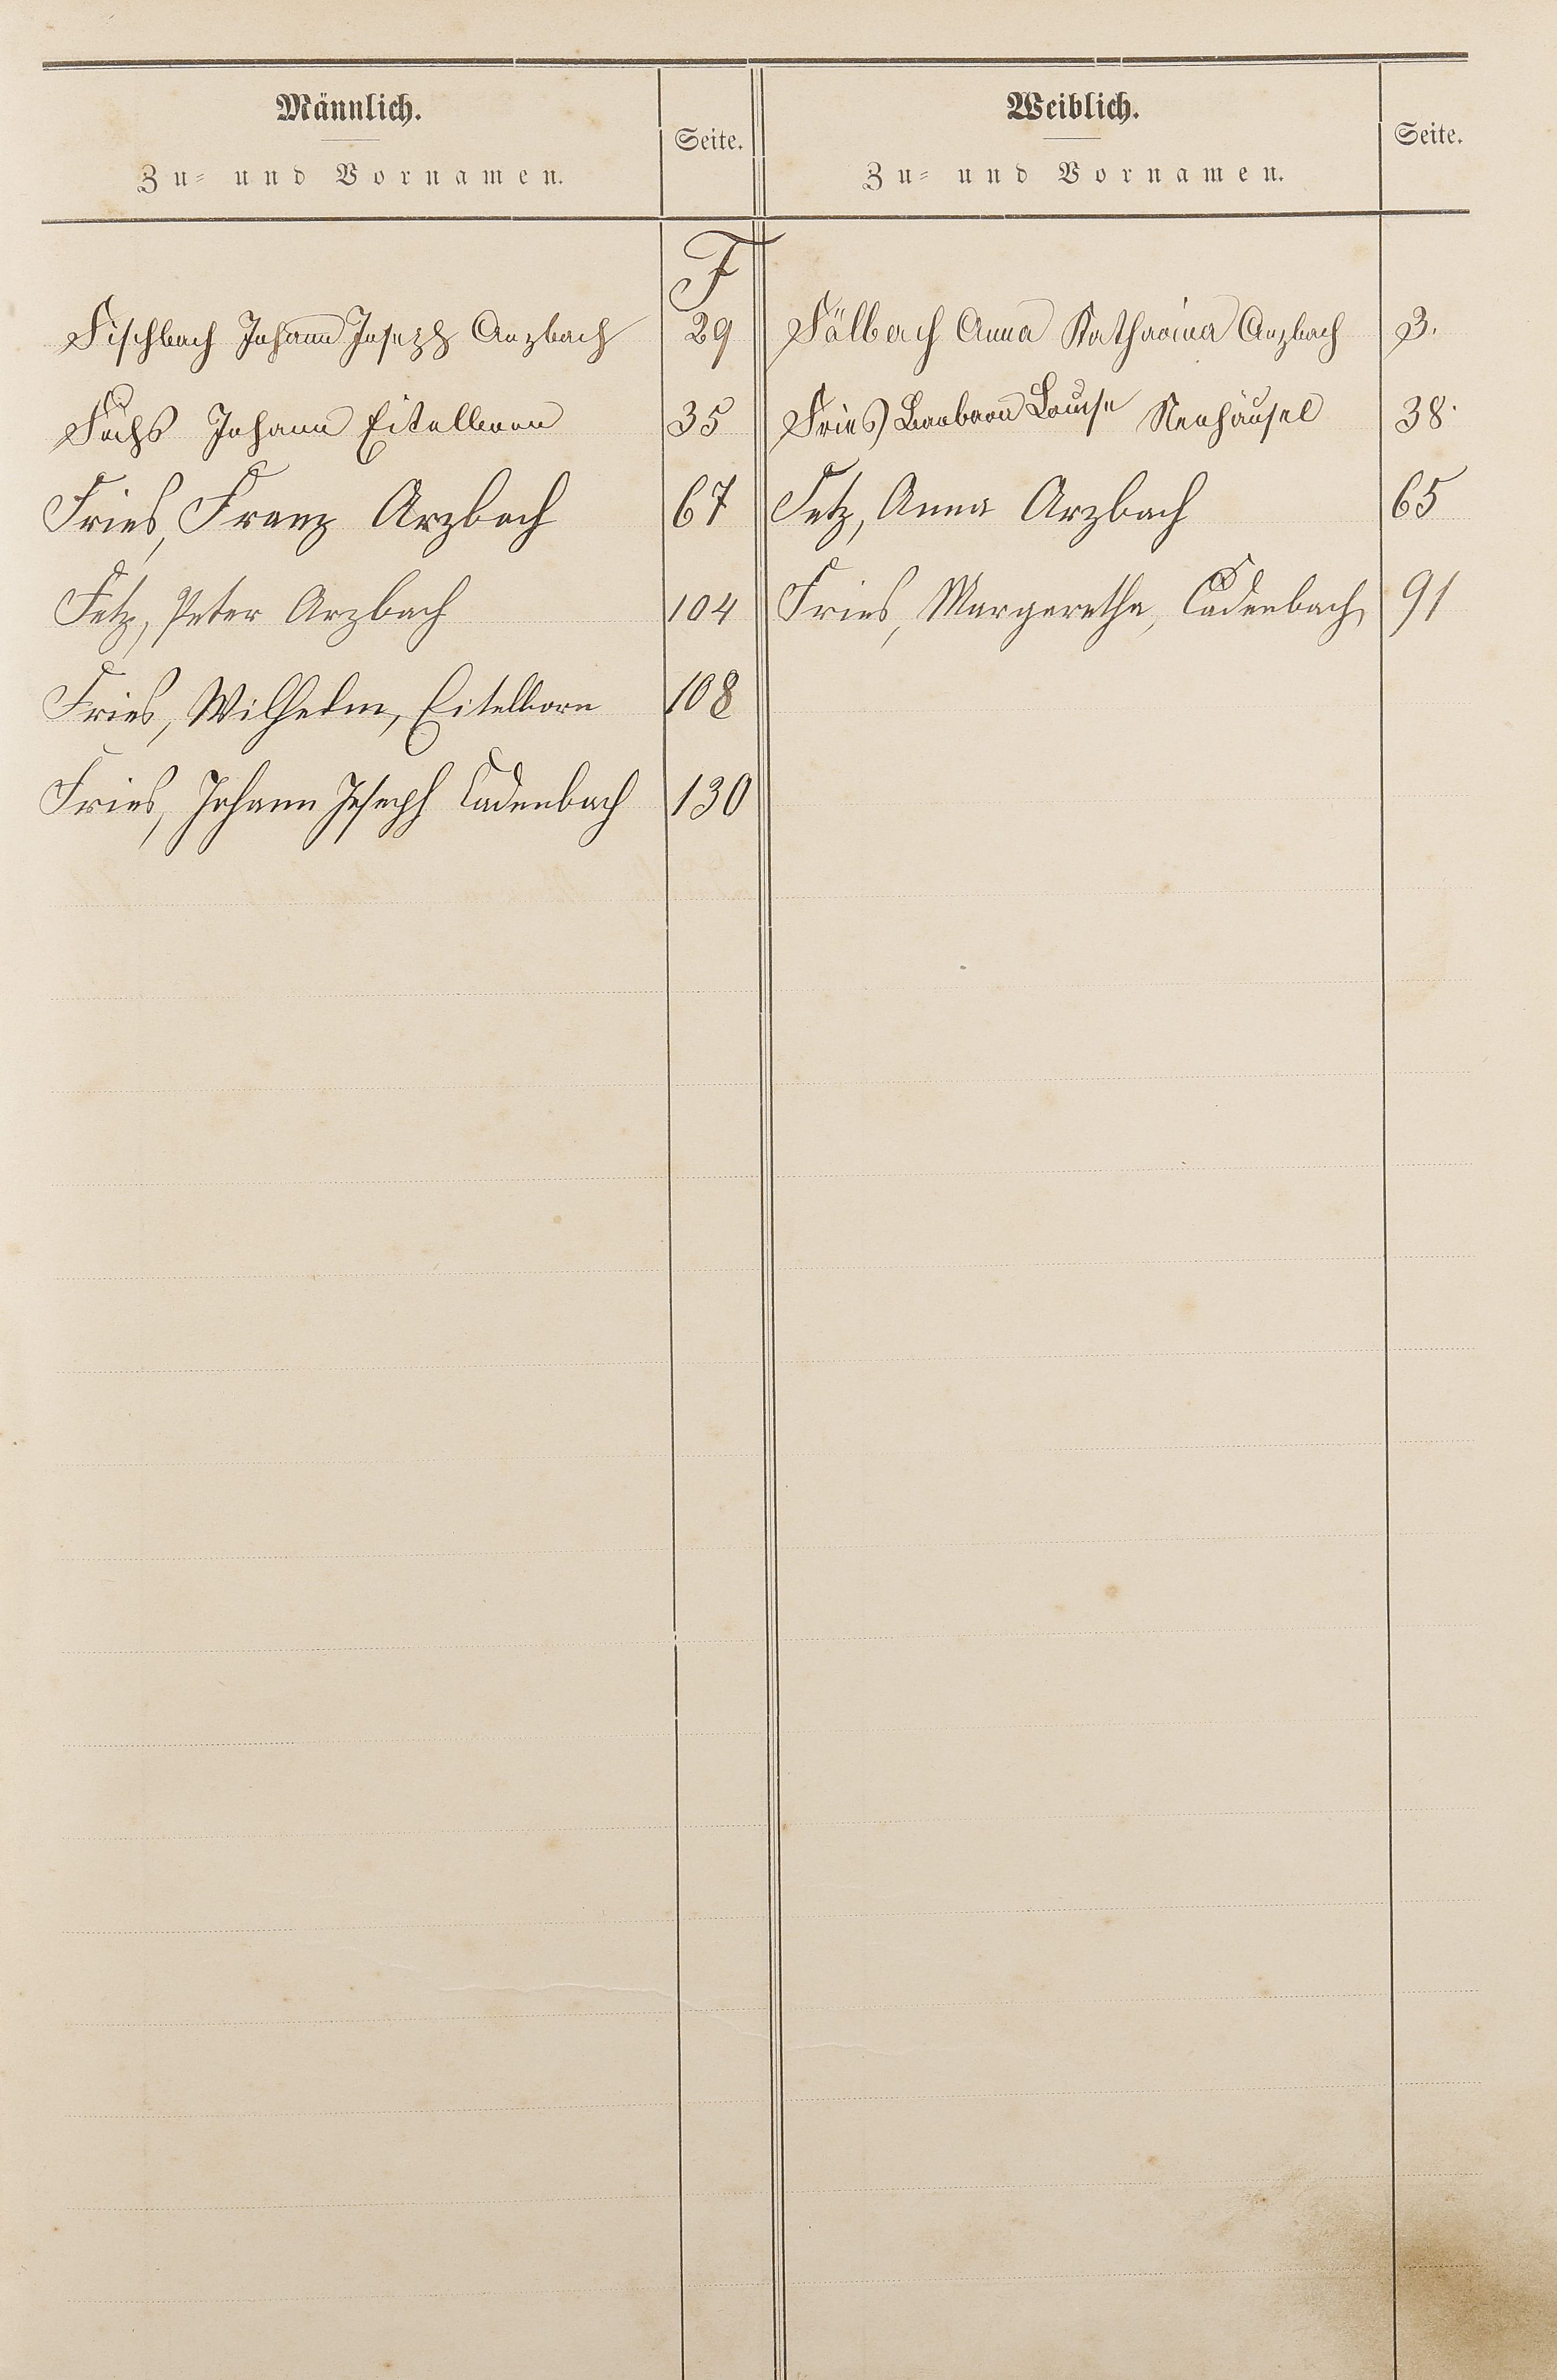 Männlich.
Zu- und Vornamen.
Seite.
Weiblich.
Zu- und Vornamen.
Seite.
F
Fischbach Johann Joseph Arzbach 29
Fälbach Anna Katharina Arzbach 3.
Fuchs Johann Eitelborn 35
Fries Barbara Louise Neuhäusel 38.
Fries, Franz Arzbach 67
Fetz, Anna Arzbach 65
Fetz, Peter Arzbach 104
Fries, Margaretha, Cadenbach 91
Fries, Wilhelm, Eitelborn 108
Fries, Johann Joseph Cadenbach 130